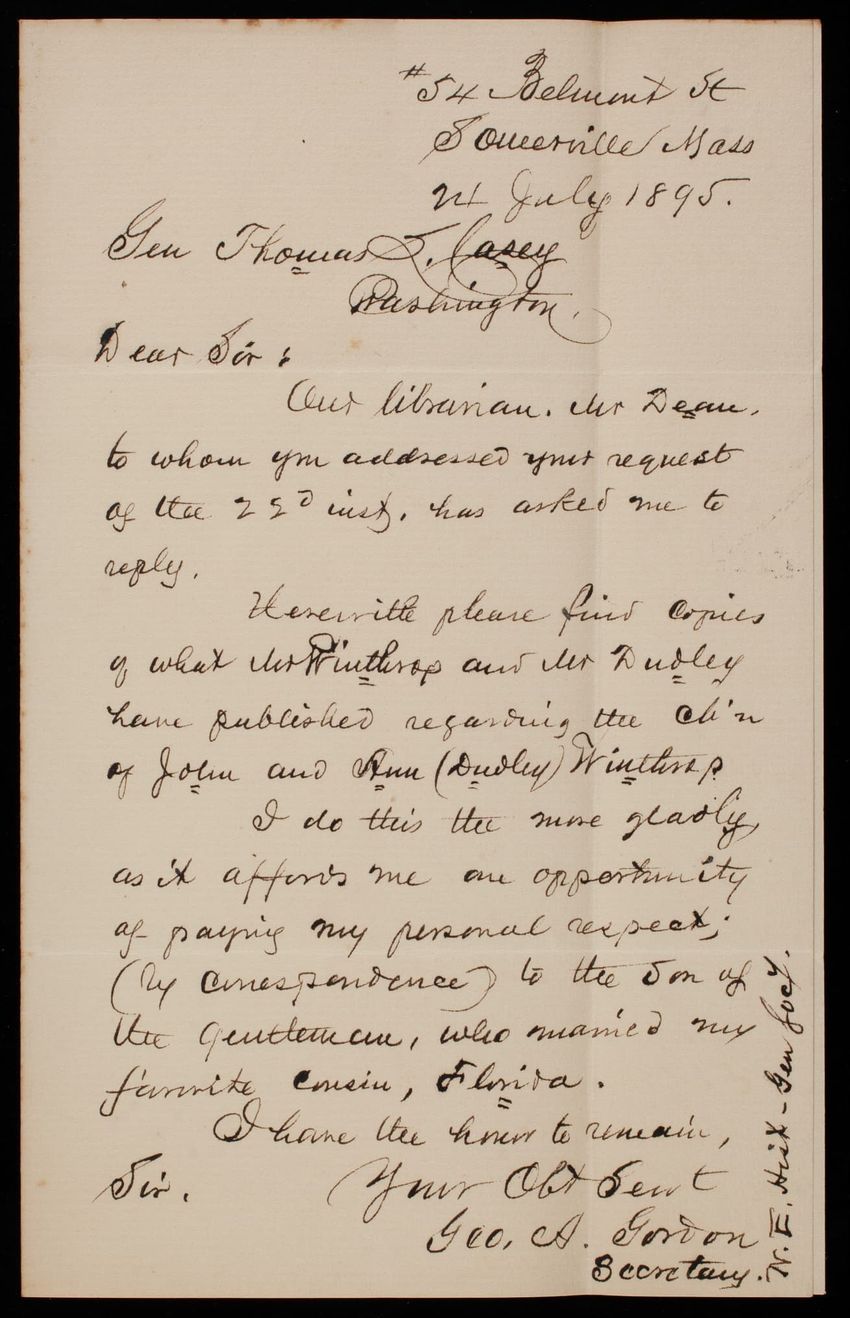 #54 Belmont St
Somerville Mass
24 July 1895.
Gen Thomas L. Casey
Washington.
Dear Sir:
Our librarian. Mr Dean,
to whom you addressed your request
of the 22d inst, has asked me to
reply.
Herewith please find copies
of what Mr Winthrop and Mr Dudley
have published regarding the ch'n
of John and Ann (Dudley) Winthrop
I do this the more gladly,
as it affords me an opportunity
of paying my personal respect;
(by correspondence) to the son of
the gentleman, who married my
favorite cousin, Florida.
I have the honor to remain,
Sir. Your Obt Servt
Geo. A. Gordon
Secretary.
N. E. Hist-Gen Socy.